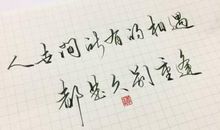 人世间所有的相遇
都是久别重逢